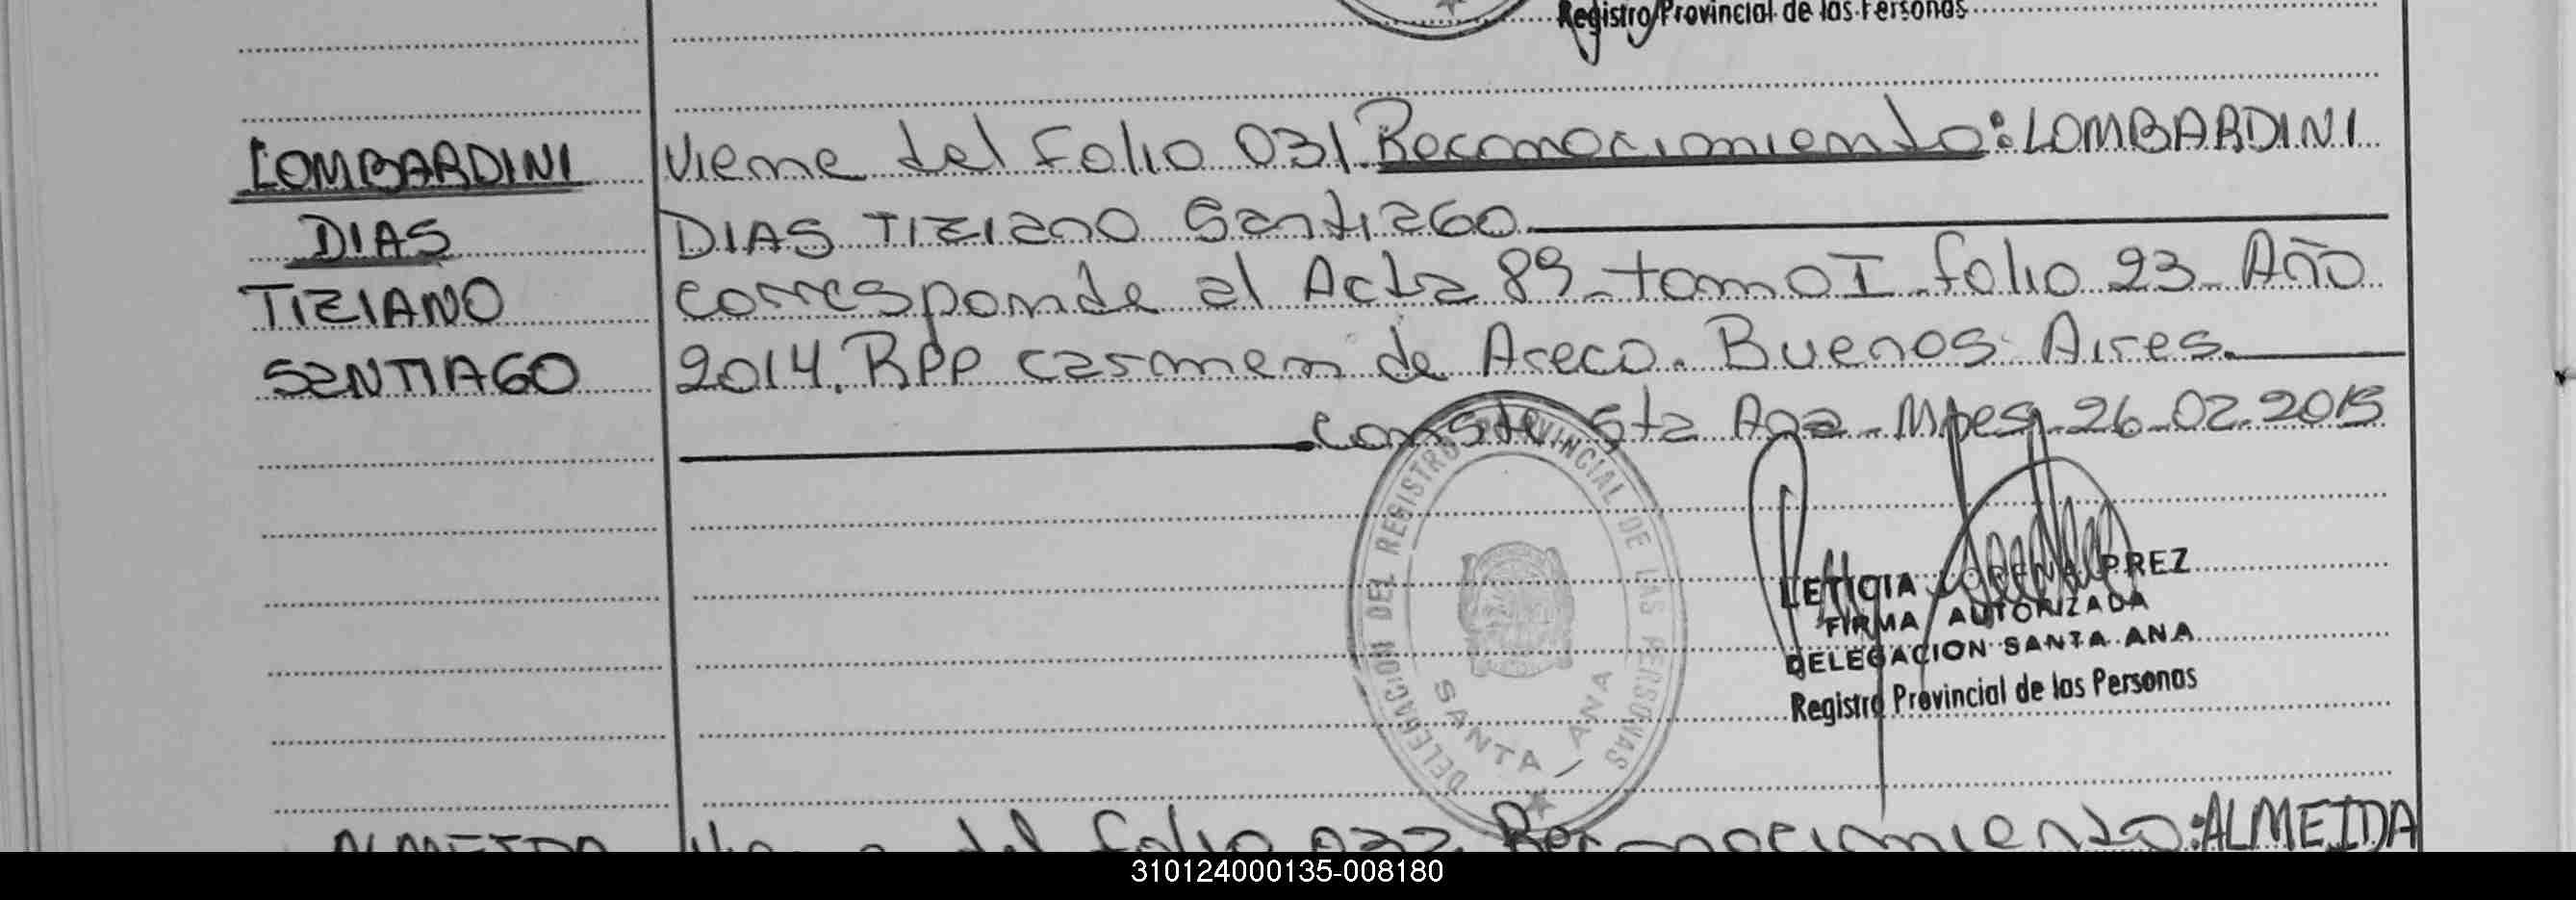 Registro Provincial de las Personas
LOMBARDINI
DIAS
TIZIANO
SANTIAGO
Viene del folio 031 Reconocimiento: LOMBARDINI
DIAS TIZIANO Santiago
corresponde al Acta 89 - tomo I - folio 23 - Año
2014. RPP carmen de Areco. Buenos Aires.
conste. Sta Ana - Mnes, 26-02-2015
DELEGACION DEL REGISTRO PROVINCIAL DE LAS PERSONAS
SANTA ANA
LETICIA LORENA PREZ
FIRMA AUTORIZADA
DELEGACION SANTA ANA
Registro Provincial de las Personas
ALMEIDA
Viene del folio 032 Reconocimiento: ALMEIDA
310124000135-008180